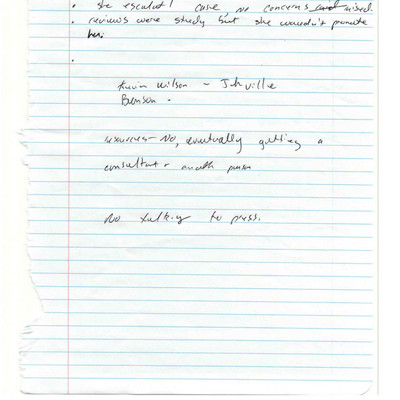 • she escalat! case, no concerns raised.
• reviews were steady but she wouldn't promote
him.
•
Kevin Wilson – J
Benson –
resources – No, eventually getting a
consultant + another person
No talking to press.